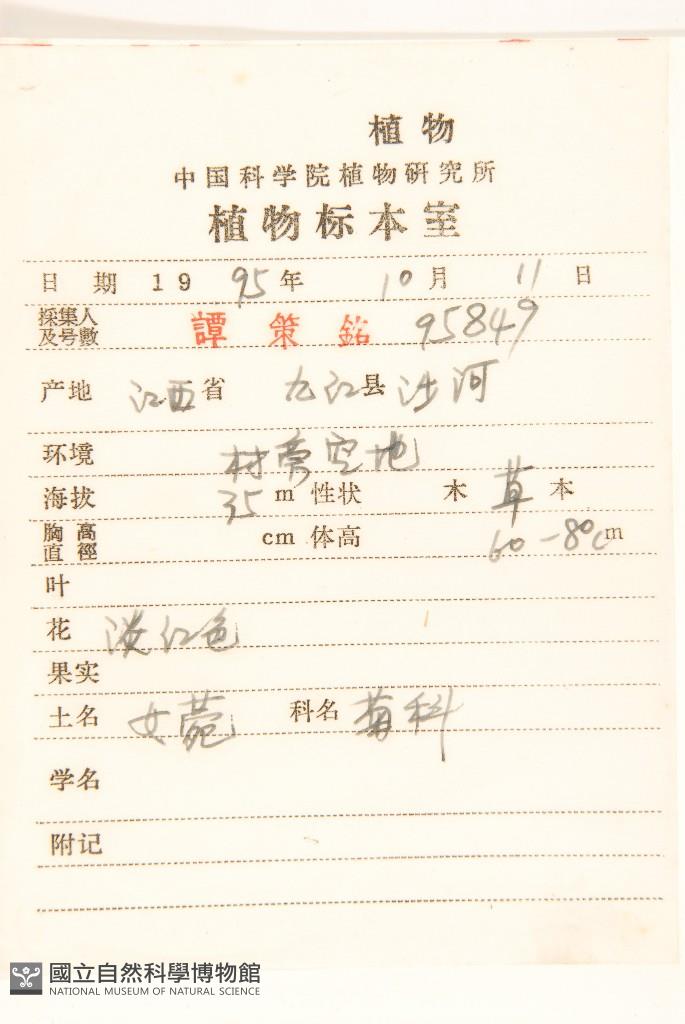 植物
中国科学院植物研究所
植物标本室
日 期 1995年 10月 11日
採集人及号數 譚策銘 95849
产地 江西省 九江县 沙河
环境 村旁空地
海拔 35 m 性状 木 草 本
胸高直徑 cm 体高 60-80cm
叶
花 淡红色
果实
土名 女菀 科名 菊科
学名
附记
國立自然科學博物館
NATIONAL MUSEUM OF NATURAL SCIENCE